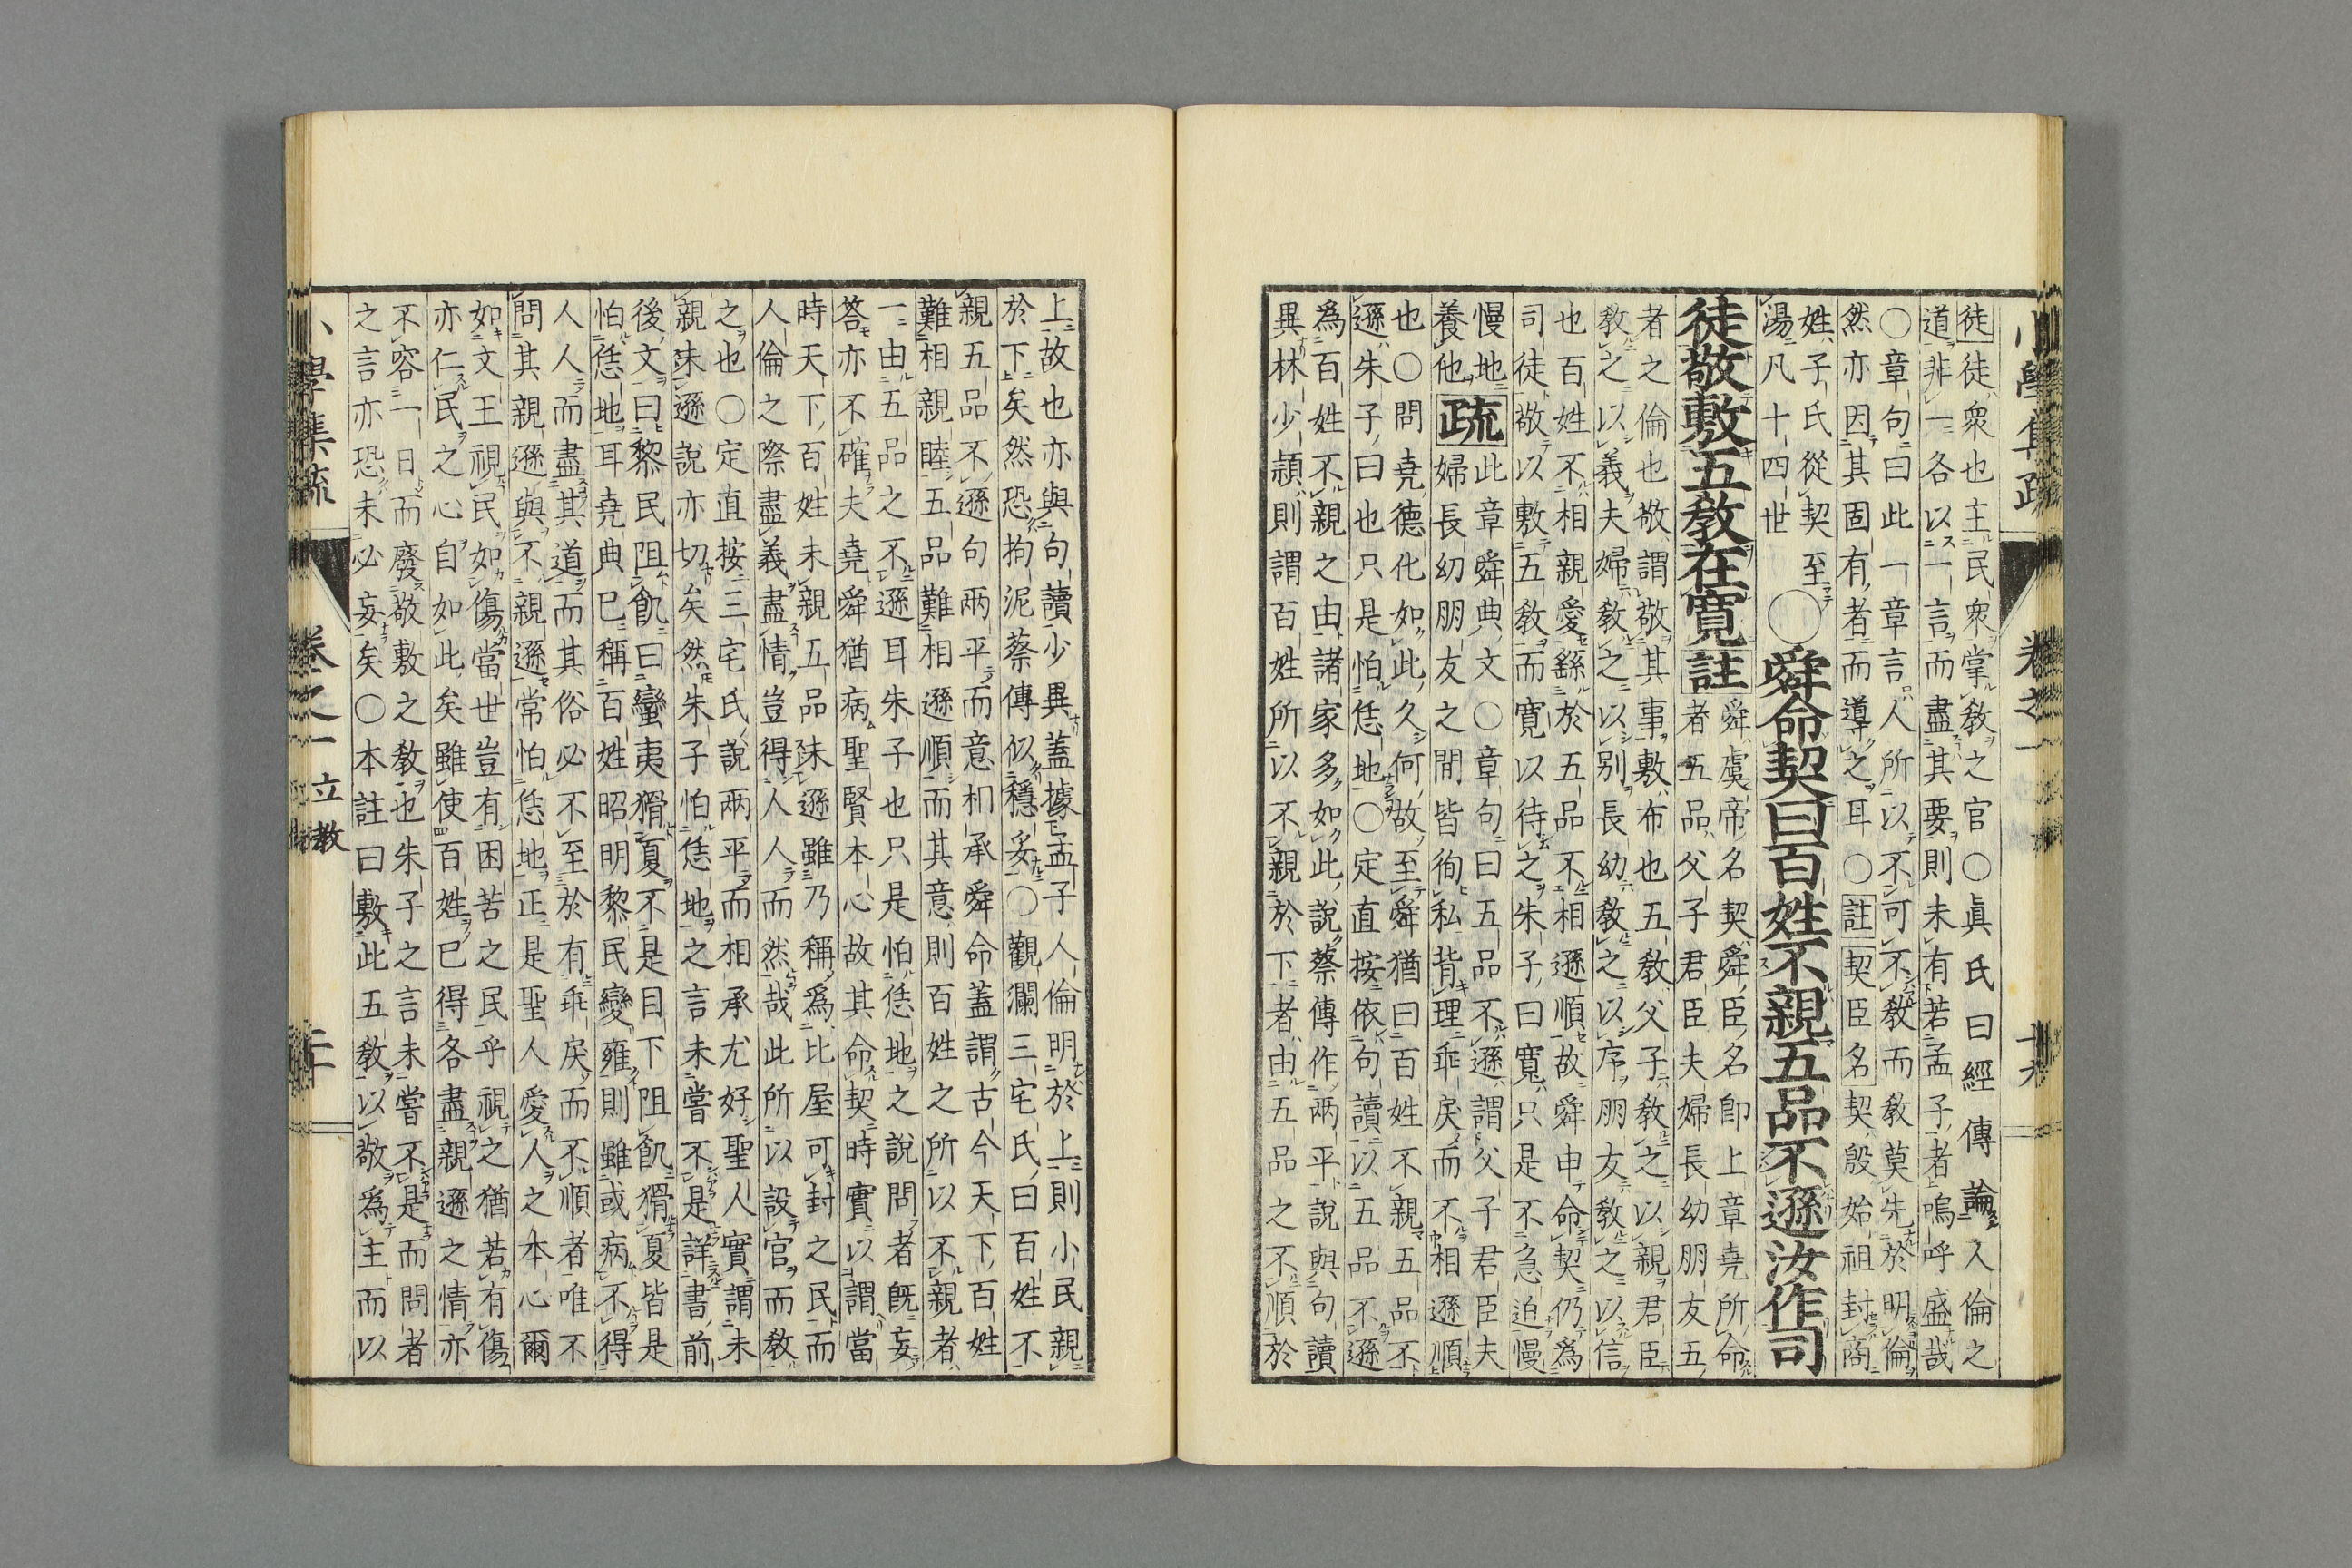 徒徒衆也主民衆掌教之官〇眞氏曰經傳論人倫之
道非一各以一言而盡其要則未有若孟子者嗚呼盛哉
〇章句曰此一章言人所以不可不教而教莫先於明倫
然亦因其固有者而導之耳〇註契臣名契殷始祖封商
姓子氏從契至
湯凡十四世
〇舜命契曰百姓不親五品不遜汝作司
徒敬敷五教在寬註舜虞帝名契舜臣名卽上章堯所命
者五品父子君臣夫婦長幼朋友五
者之倫也敬謂敬其事敷布也五教父子教之以親君臣
教之以義夫婦教之以別長幼教之以序朋友教之以信
也百姓不相親愛繇於五品不相遜順故舜申命契仍爲
司徒敬以敷五教而寬以待之朱子曰寬只是不急迫慢
慢地養他疏此章舜典文〇章句曰五品不遜謂父子君臣夫
婦長幼朋友之間皆徇私背理乖戾而不相遜順
也〇問堯德化如此久何故至舜猶曰百姓不親五品不
遜朱子曰也只是怕恁地〇定直按依句讀以五品不遜
爲百姓不親之由諸家多如此說蔡傳作兩平說與句讀
異林少頴則謂百姓所以不親於下者由五品之不順於
小學集疏
卷之一
上故也亦與句讀少異蓋據孟子人倫明於上則小民親
於下矣然恐拘泥蔡傳似穩妥〇觀瀾三宅氏曰百姓不
親五品不遜句兩平而意相承舜命蓋謂古今天下百姓
難相親睦五品難相遜順而其意則百姓之所以不親者
一由五品之不遜耳朱子也只是怕恁地之說問者既妄
答亦不確夫堯舜猶病聖賢本心故其命契時實以謂當
時天下百姓未親五品未遜雖乃稱爲比屋可封之民而
人倫之際盡義盡情豈得人人而然哉此所以設官而教
之也〇定直按三宅氏說兩平而相承尤好聖人實謂未
親未遜說亦切矣然朱子怕恁地之言未嘗不是詳書前
後文曰黎民阻飢曰蠻夷猾夏不是目下阻飢猾夏皆是
怕恁地耳堯典已稱百姓昭明黎民變雍則雖或病不得
人人而盡其道而其俗必不至於有乖戾而不順者唯不
問其親遜與不親遜常怕恁地正是聖人愛人之本心爾
如文王視民如傷當世豈有困苦之民乎視之猶若有傷
亦仁民之心自如此矣雖使百姓已得各盡親遜之情亦
不容一日而廢敬敷之教也朱子之言未嘗不是而問者
之言亦恐未必妄矣〇本註曰敷此五教以敬爲主而以
小學集疏
卷之一
立教